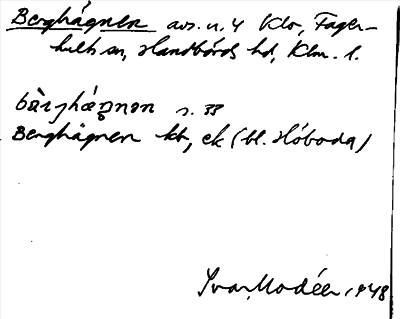 Berghågnen avs. u. 4 Klo, Fager-
hults sn, Handbörds hd, Klm. l.
bàrjhåŋnən s. 33
Berghågnen kt, ek (bl. Höboda)
Ivar Modéer 1948